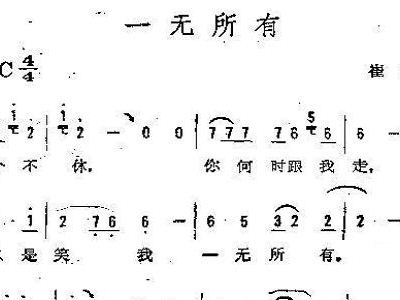 一无所有
C 4/4
崔
2 2 - 0 0 7 7 7 7 6 5 6 6 -
不休。 你何时跟我走,
1 2 7 6 6 - 6 5 3 2 2 -
是笑 我 一无所有。